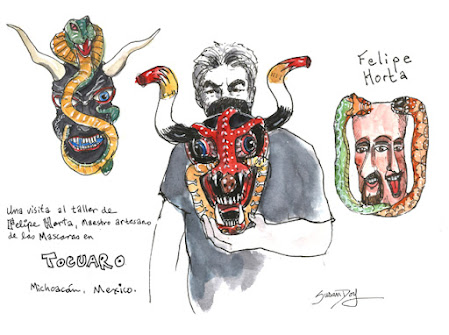 Felipe
Horta
Una visita al taller de
Felipe Horta, Maestro artesano
de las Mascaras en
TOCUARO
Michoacán, Mexico.